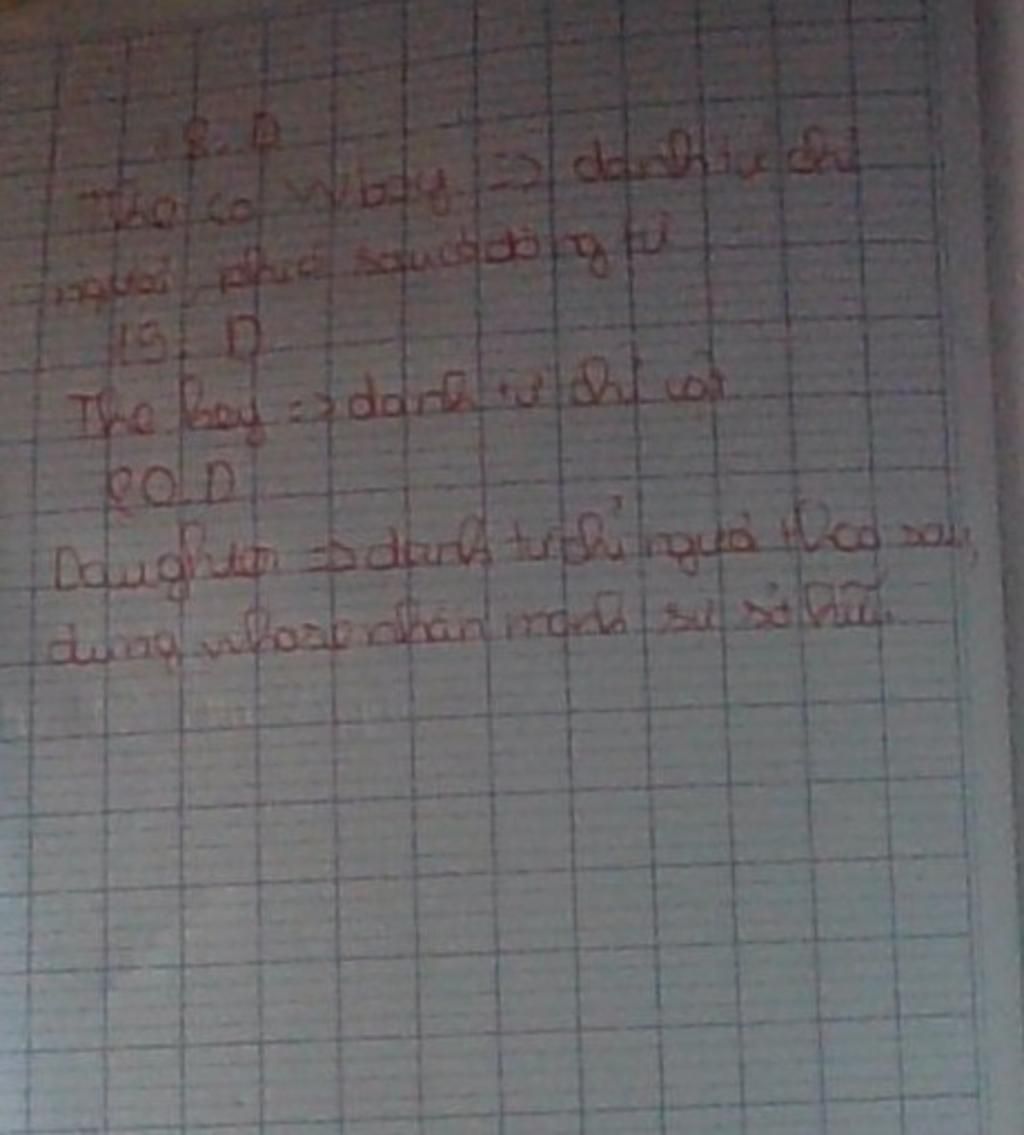 8. D
The cowboy => danh từ chỉ
người, phía sau là động từ
15. D
The key => danh từ chỉ vật
20. D
Daughter => danh từ chỉ người theo sau,
dùng whose nhấn mạnh sự sở hữu.